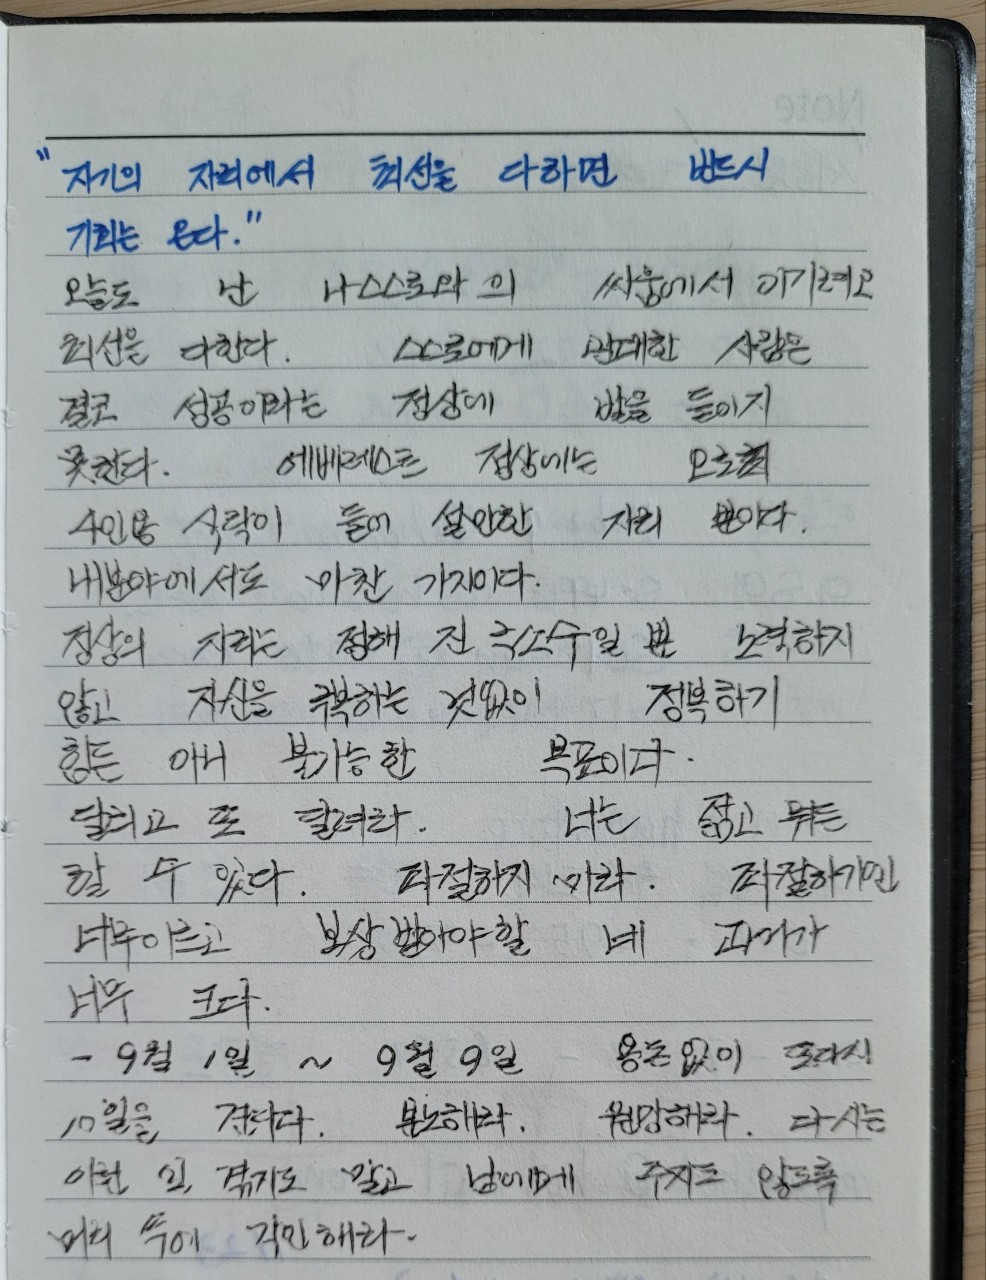 "자기의 자리에서 최선을 다하면 반드시
기회는 온다."
오늘도 난 나스스로와의 싸움에서 이기려고
최선을 다한다. 스스로에게 관대한 사람은
결코 성공이라는 정상에 발을 들이지
못한다. 에베레스트 정상에는 오로지
4인용 식탁이 들어 설만한 자리 뿐이다.
내분야에서도 마찬가지이다.
정상의 자리는 정해 진 극소수일 뿐 노력하지
않고 자신을 극복하는 것없이 정복하기
힘든 아니 불가능한 목표이다.
달리고 또 달려라. 너는 젊고 뭐든
할 수 있다. 좌절하지 마라. 좌절하기엔
너무이르고 보상받아야할 네 과거가
너무 크다.
- 9월 1일 ~ 9월 9일 용돈없이 또다시
10일을 견딘다. 분노해라. 원망해라. 다시는
이런 일 겪지도 말고 남에게 주지도 않도록
머리 속에 각인해라.